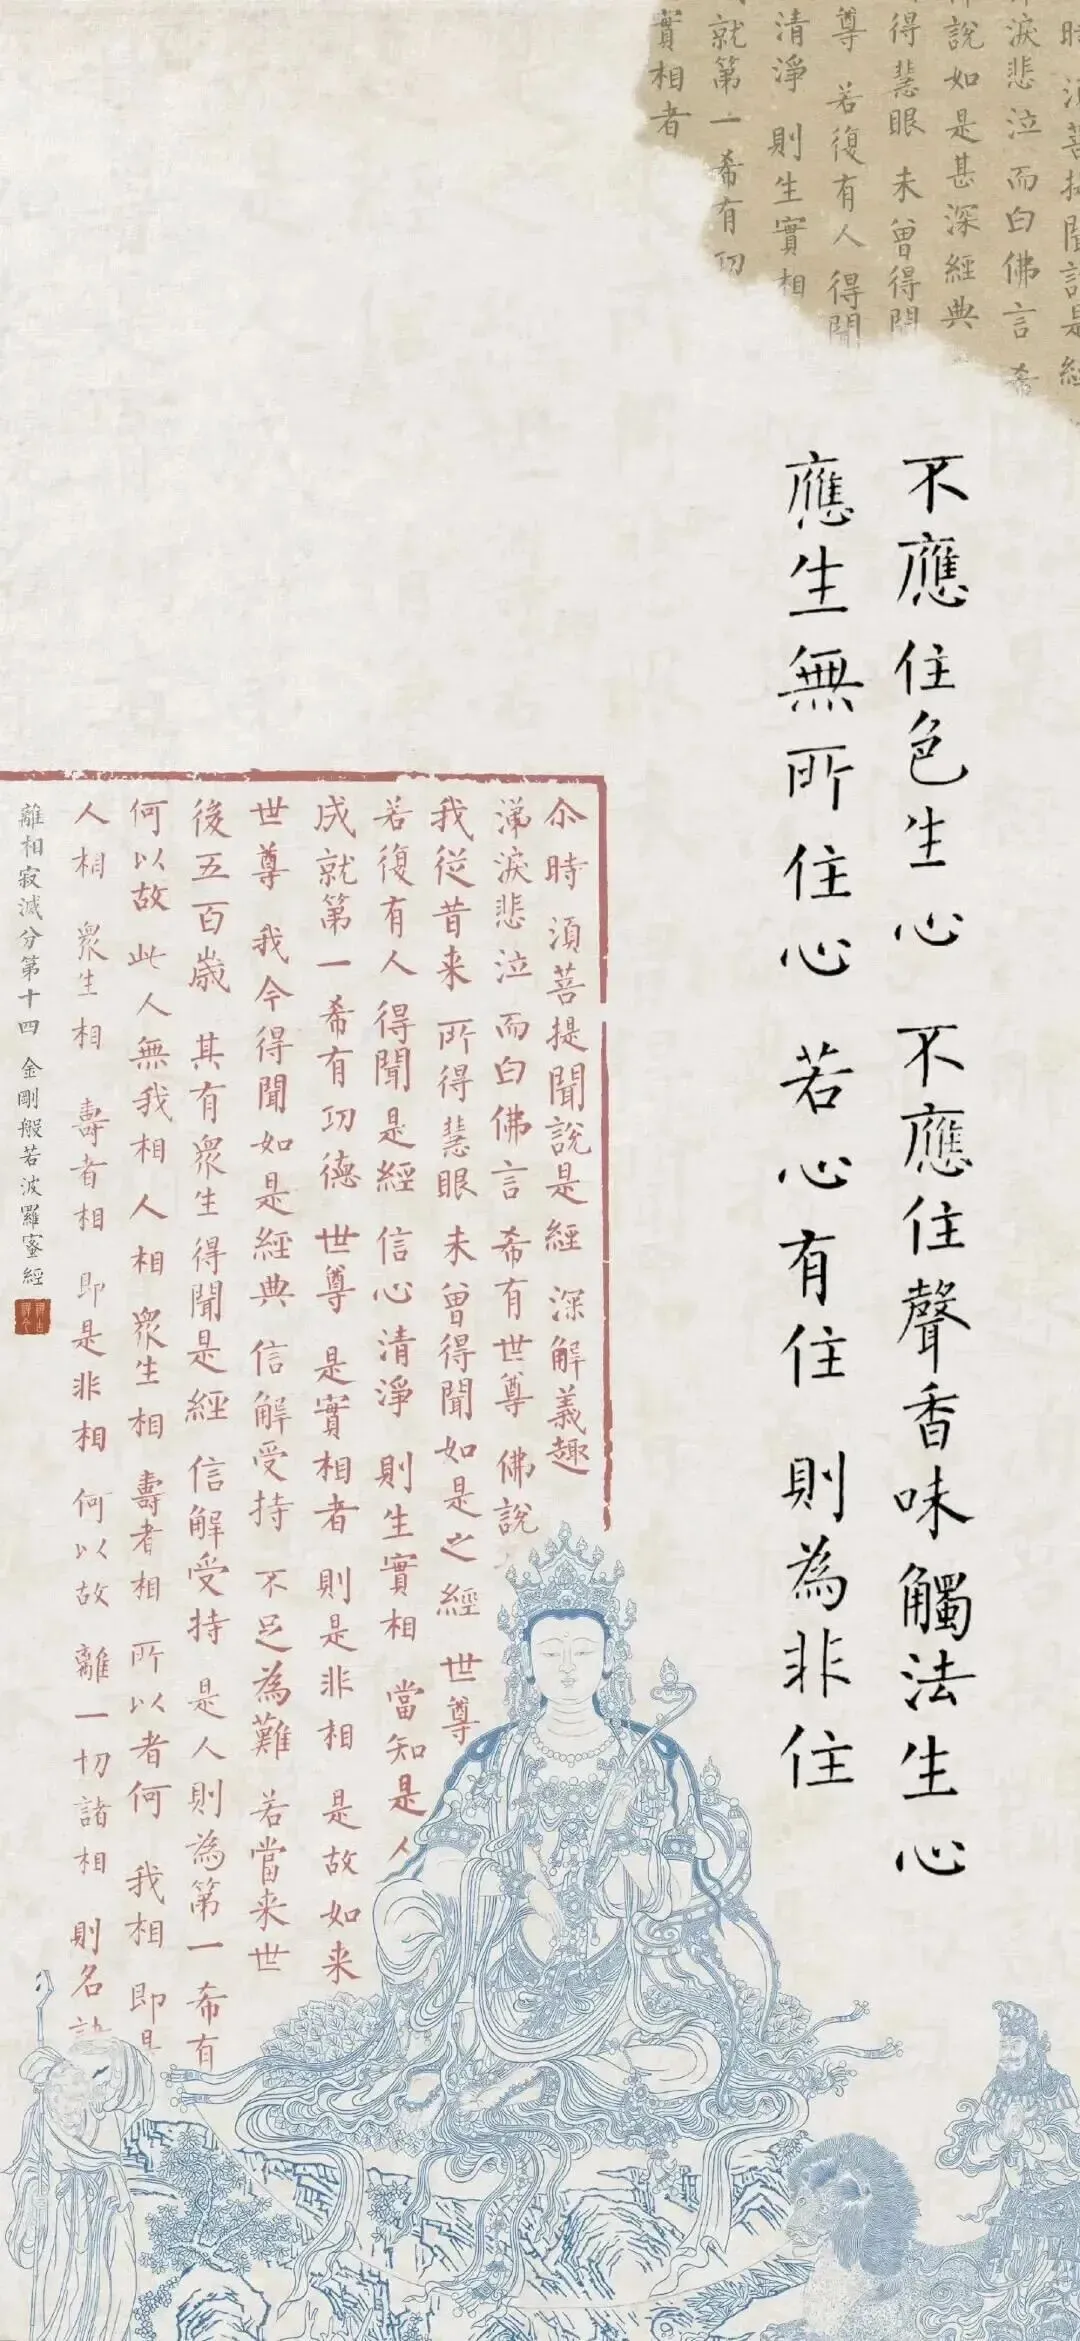 時 須菩提聞說是經
淚悲泣 而白佛言 希
說如是甚深經典
得慧眼 未曾得聞
尊 若復有人 得聞
清淨 則生實相
就第一希有功
實相者
不應住色生心 不應住聲香味觸法生心
應生無所住心 若心有住 則為非住
尒時 須菩提聞說是經 深解義趣
涕淚悲泣 而白佛言 希有世尊 佛說
我從昔来 所得慧眼 未曾得聞如是之經 世尊
若復有人 得聞是經 信心清淨 則生實相 當知是人
成就第一希有功德 世尊 是實相者 則是非相 是故如来
世尊 我今得聞如是經典 信解受持 不足為難 若當来世
後五百歲 其有眾生得聞是經 信解受持 是人則為第一希有
何以故 此人無我相人相 眾生相 壽者相 所以者何 我相 即是
人相 眾生相 壽者相 即是非相 何以故 離一切諸相 則名諸
離相寂滅分第十四 金剛般若波羅蜜經